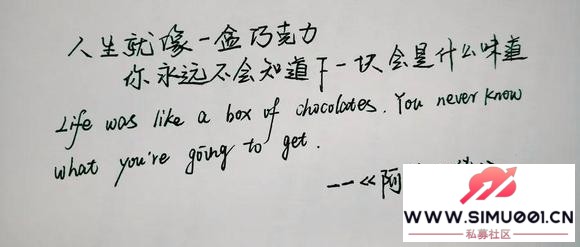 人生就像一盒巧克力
你永远不会知道下一块会是什么味道
Life was like a box of chocolates. You never know
what you're going to get.
——《阿
WWW.SIMU001.CN
私募社区